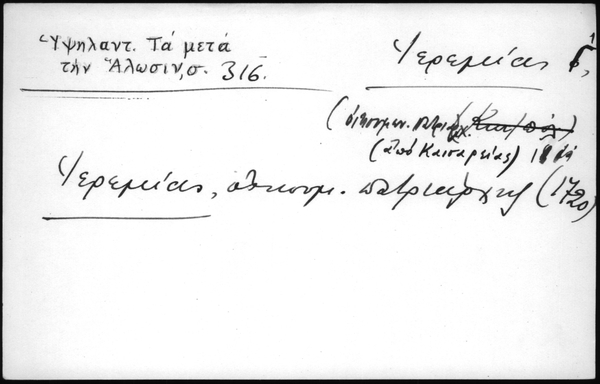 Ὑψηλαντ. Τά μετά
τήν Ἅλωσιν, σ. 316.
Ἱερεμίας Γ΄
(οἰκουμεν. πατριάρχ.
(ἀπό Καισαρείας)
Ἱερεμίας, οἰκουμ. πατριάρχης (1720)